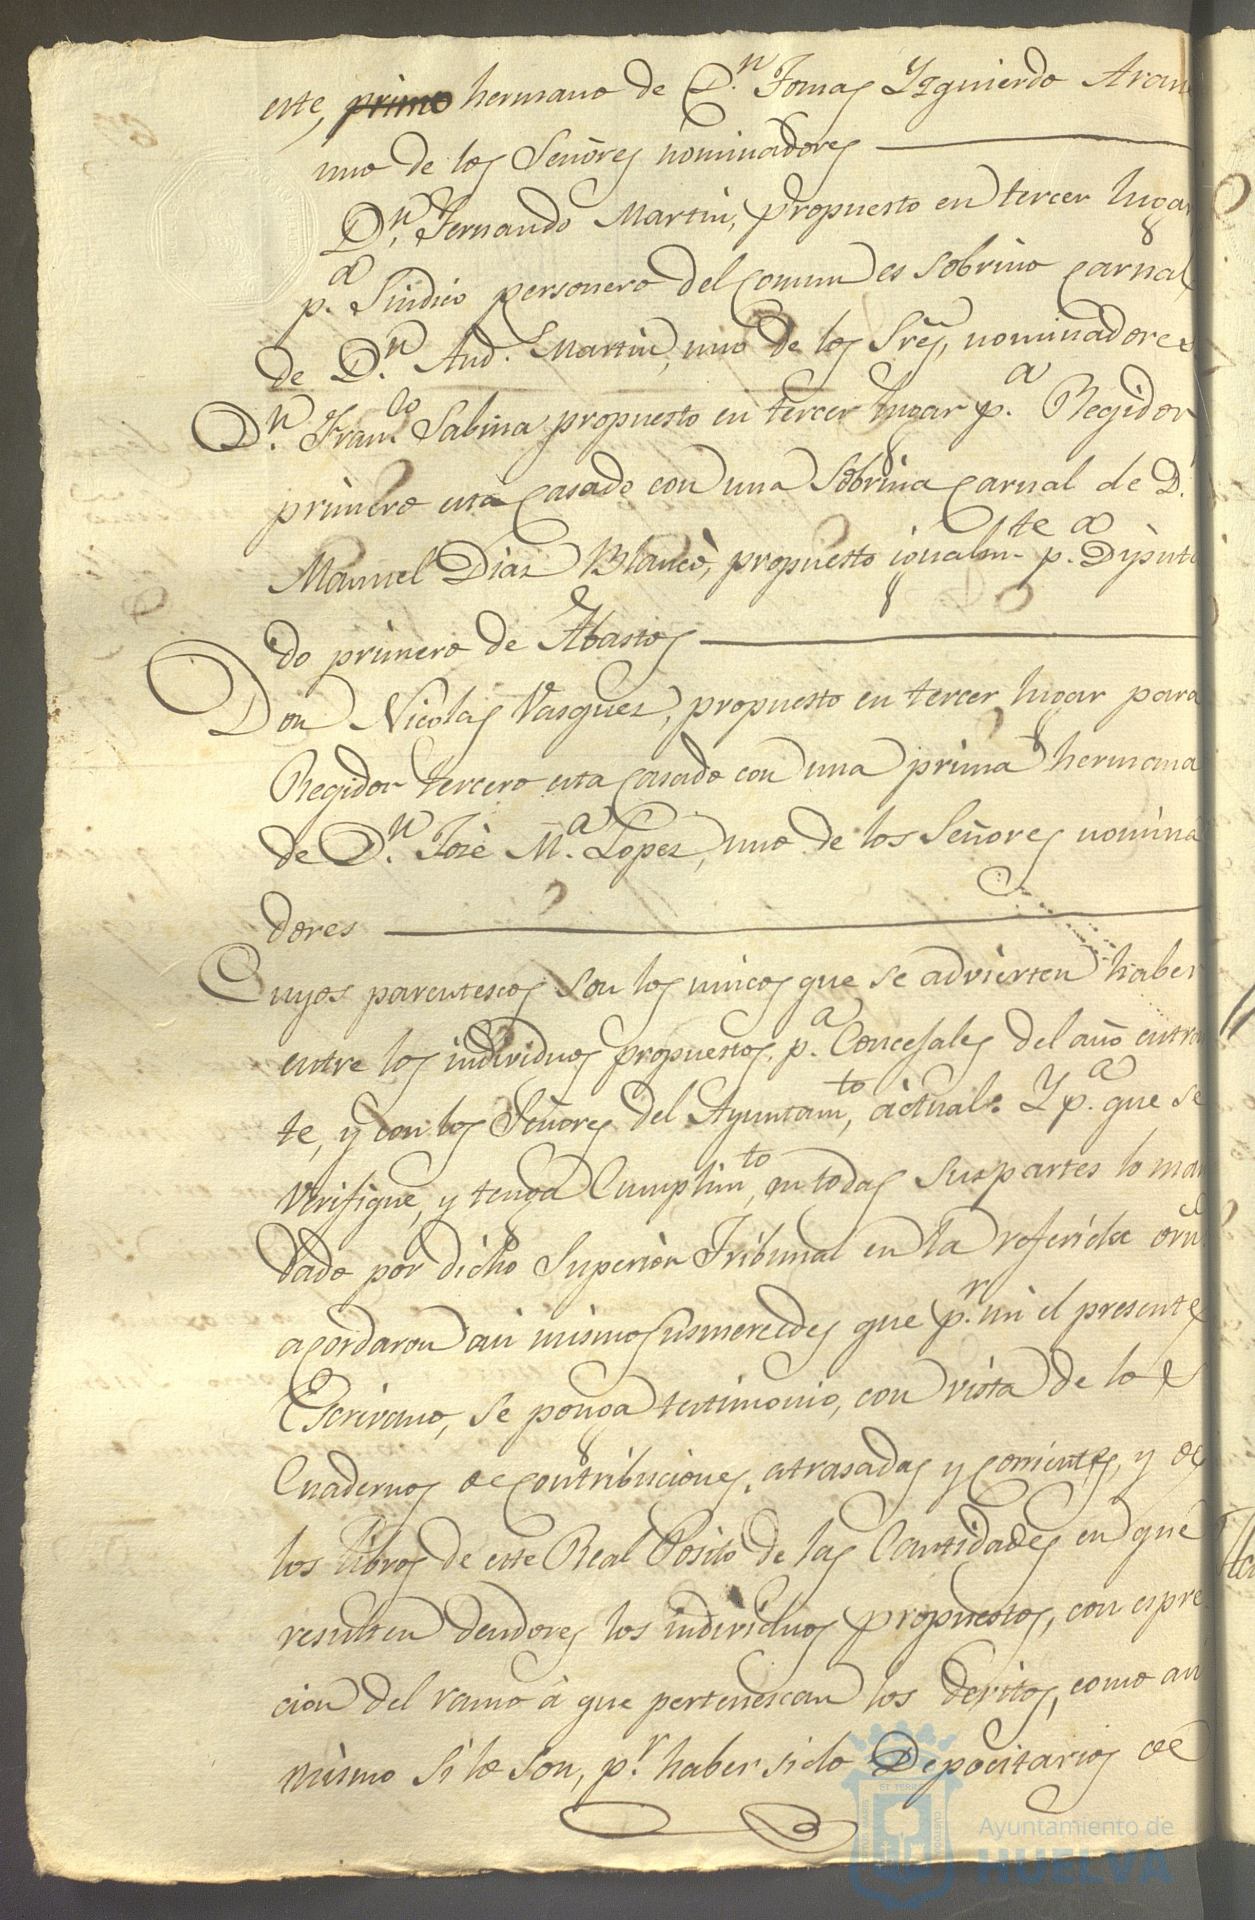 este, primo hermano de D.n Tomas Yzquierdo Aran
uno de los Señores nominadores
D.n Fernando Martin, propuesto en tercer lugar
p.a Sindico personero del Comun es sobrino carnal
de D.n And.s Martin, uno de los Sres, nominadores
D.n Fran.co Sabina propuesto en tercer lugar p.a Regidor
primero esta casado con una Sobrina carnal de D.
Manuel Diaz Blanco, propuesto igualm.te p.a Diputa
do primero de Abastos
Don Nicolas Vasquez, propuesto en tercer lugar para
Regidor tercero esta casado con una prima hermana
de D.n José M.a Lopez, uno de los Señores nomina
dores
Cuyos parentescos son los unicos que se advierten haber
entre los individuos propuestos p.a Concejales del año entran
te, y con los Señores del Ayuntam.to actual. Y p.a que se
Verifique, y tenga Cumplim.to en todas sus partes lo man
dado por dicho Superior Tribunal en la referida orn
acordaron asi mismo sus mercedes que p.r mi el presente
Escrivano, se ponga testimonio, con vista de los
Cuadernos de contribuciones, atrasadas y corrientes, y de
los libros de este Real Posito de las Cantidades en que
resulten deudores los individuos propuestos, con espre
cion del ramo à que pertenescan los devitos, como asi
mismo si lo son, p.r haber sido Depocitarios de
Ayuntamiento de
HUELVA